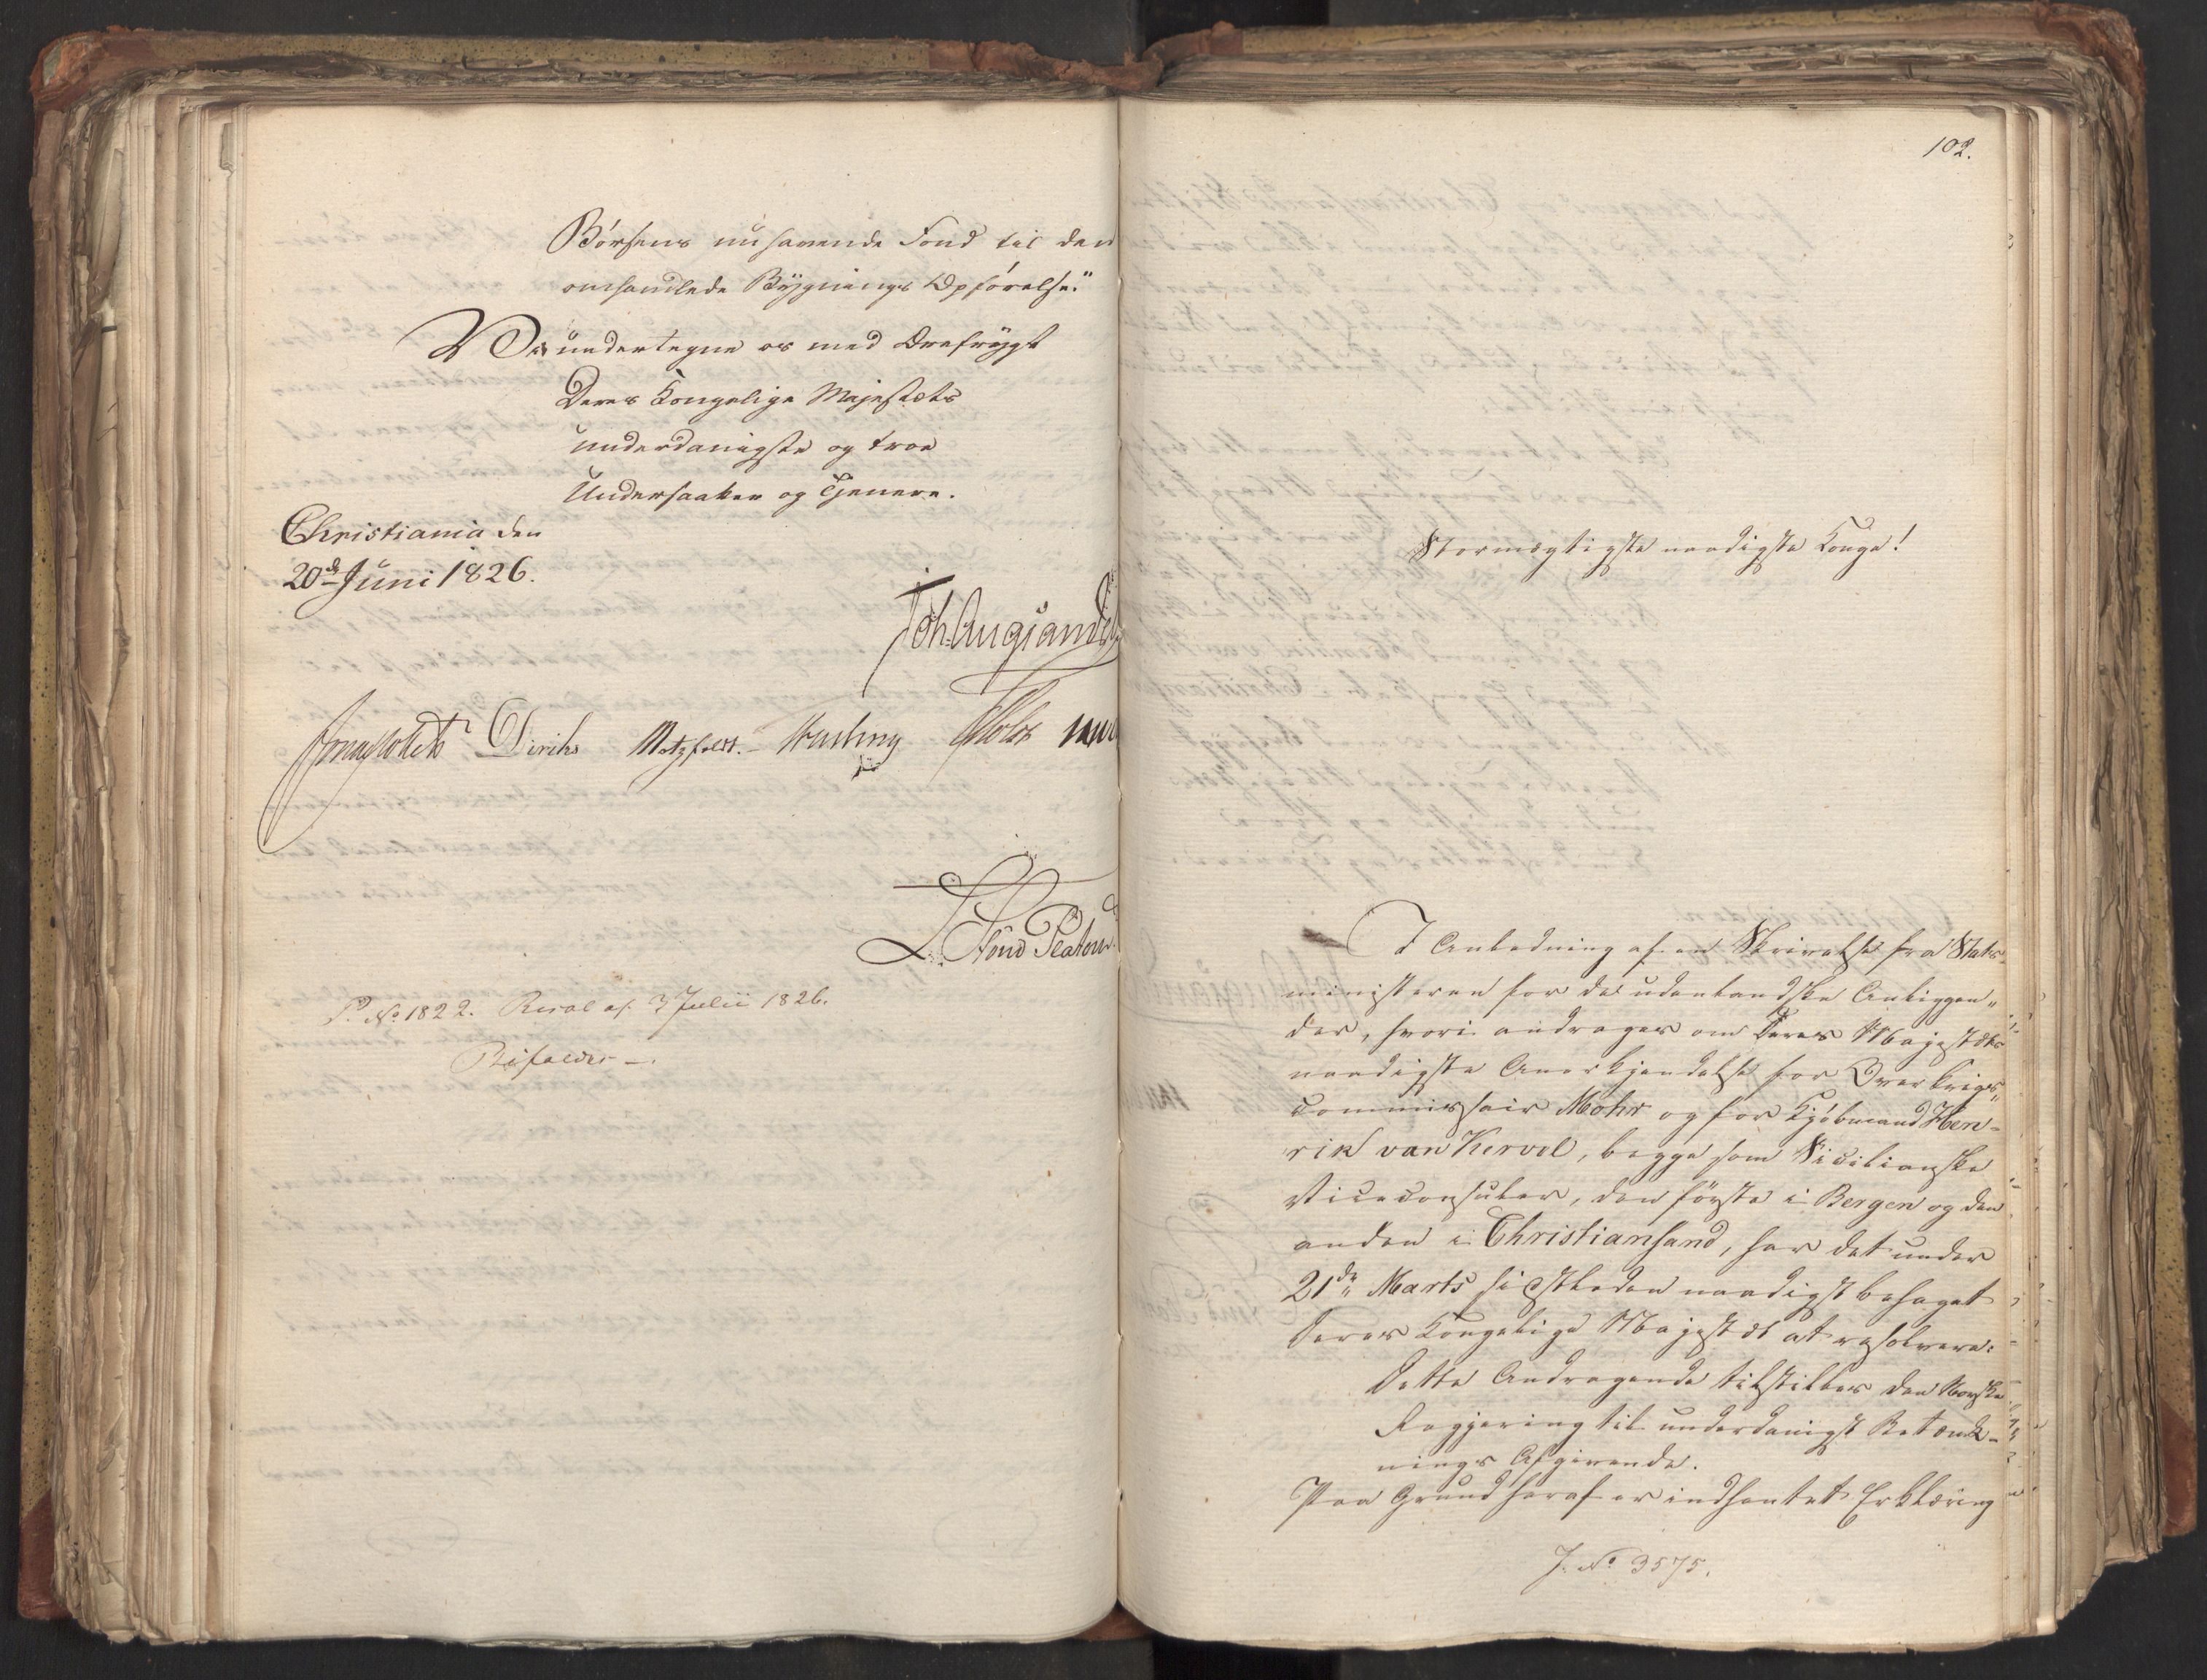 Börsens nuhavende Fond til den
omhandlede Bygnings Opförelse."
Vi undertegne os med Ærefrygt
Deres Kongelige Majestæts
underdanigste og troe
Undersaatter og Tjenere.
Christiania den
20d Juni 1826.
Joh. Aug: Sandels
Jonas Collett Diriks Motzfeldt. Krieg Holst
L. Stoud Platou
P. No 1822. Resol. af 3 Julii 1826.
Bifaldes.
102.
Stormægtigste naadigste Konge!
I Anledning af en Skrivelse fra Stats-
ministeren for de udenlandske Anliggen-
der, hvori andrages om Deres Majestæts
naadigste Anerkjendelse for Overkrigs-
commissair Mohr og for Kjöbmand Hen-
rik van Kervel, begge som Sicilianske
Viceconsuler, den förste i Bergen og den
anden i Christiansand, har det under
21de Marts sidstleden naadigst behaget
Deres Kongelige Majestæt at resolvere:
Dette Andragende tilstilles den Norske
Regjering til underdanigst Betænk-
nings Afgivende.
Paa Grund heraf er indhentet Erklæring
J. No 3575.